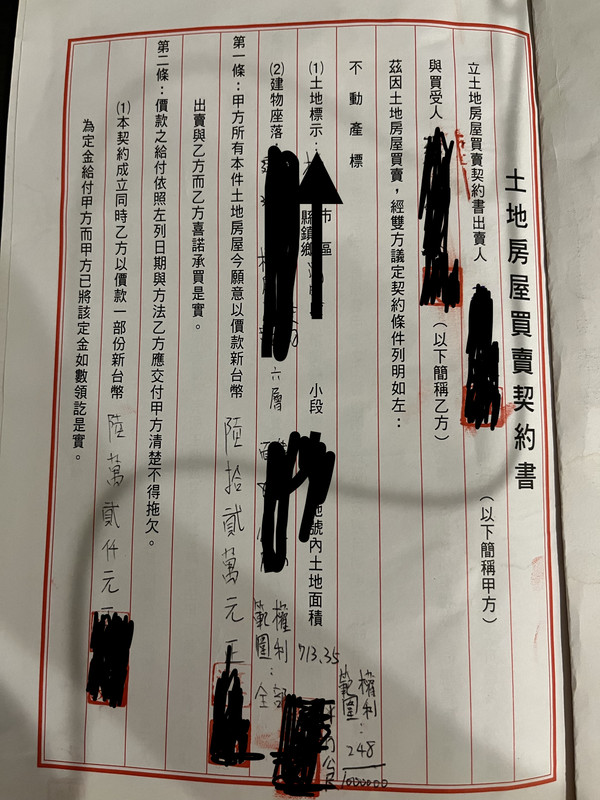 土地房屋買賣契約書
立土地房屋買賣契約書出賣人（以下簡稱甲方）
與買受人（以下簡稱乙方）
茲因土地房屋買賣，經雙方議定契約條件列明如左：
不動產標
(1)土地標示：市縣 區鎮鄉 小段 地號內土地面積 713.35 權利範圍：248/1000000
(2)建物座落 六層 權利範圍：全部
第一條：甲方所有本件土地房屋今願意以價款新台幣陸拾貳萬元
出賣與乙方而乙方喜諾承買是實。
第二條：價款之給付依照左列日期與方法乙方應交付甲方清楚不得拖欠。
(1)本契約成立同時乙方以價款一部份新台幣陸萬貳仟元
為定金給付甲方而甲方已將該定金如數領訖是實。